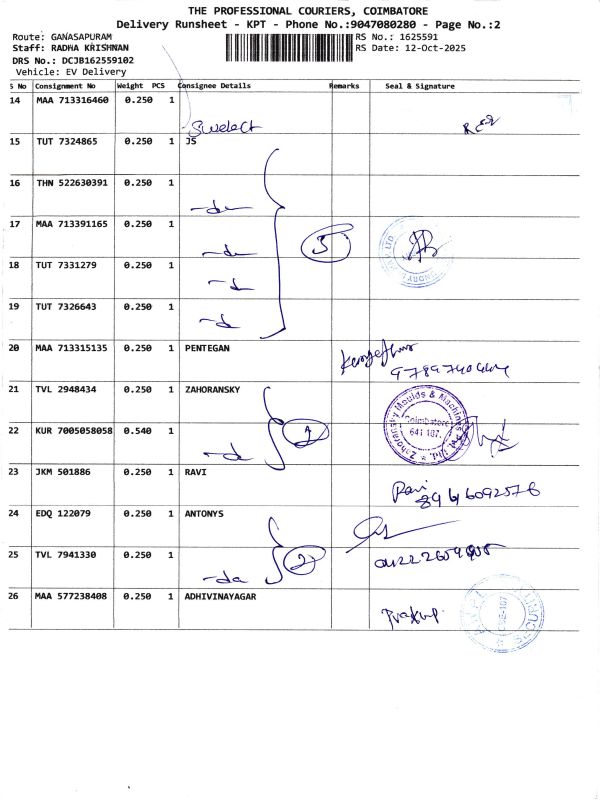 THE PROFESSIONAL COURIERS, COIMBATORE
Delivery Runsheet - KPT - Phone No.:9047080280 - Page No.:2
Route: GANASAPURAM
Staff: RADHA KRISHNAN
DRS No.: DCJB162559102
Vehicle: EV Delivery
RS No.: 1625591
RS Date: 12-Oct-2025
S No Consignment No Weight PCS Consignee Details Remarks Seal & Signature
14 MAA 713316460 0.250 1 Swelect
15 TUT 7324865 0.250 1 JS
16 THN 522630391 0.250 1 -do-
17 MAA 713391165 0.250 1 -do-
5
18 TUT 7331279 0.250 1 -do-
19 TUT 7326643 0.250 1 -do-
20 MAA 713315135 0.250 1 PENTEGAN
21 TVL 2948434 0.250 1 ZAHORANSKY
Zahoransky Moulds & Machines Pvt. Ltd. Coimbatore 641 107.
22 KUR 7005058058 0.540 1 -do-
23 JKM 501886 0.250 1 RAVI
Ravi
24 EDQ 122079 0.250 1 ANTONYS
25 TVL 7941330 0.250 1 -do-
2
26 MAA 577238408 0.250 1 ADHIVINAYAGAR